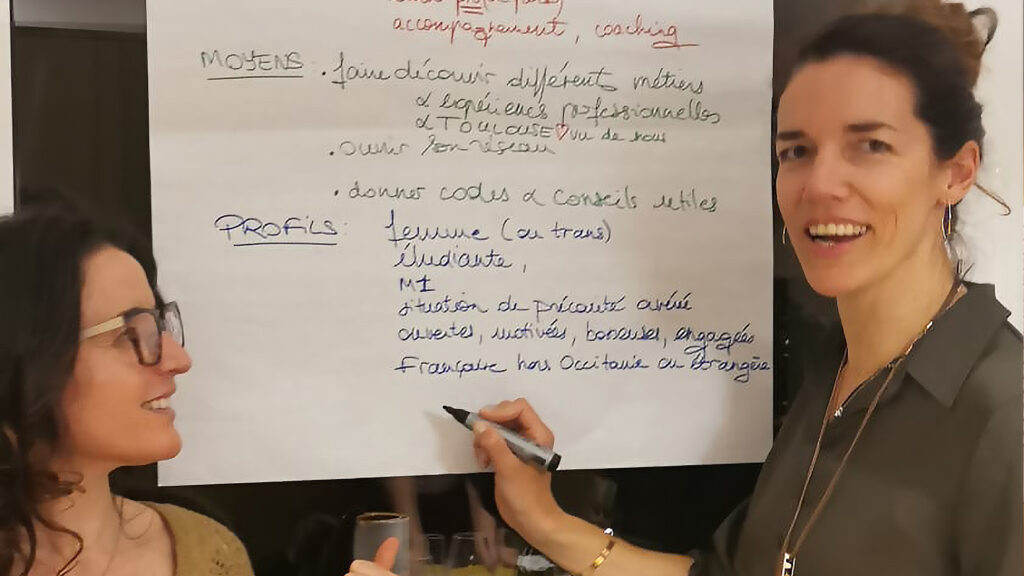 accompagnement, coaching
MOYENS : • faire découvrir différents métiers
& expérience professionnelles
& TOULOUSE ♡ vu de nous
• ouvrir son réseau
• donner codes & conseils utiles
PROFILS : femme (ou trans)
étudiante,
M1
situation de précarité avéré
ouvertes, motivées, bosseuses, engagées
Française hors Occitanie ou étrangère